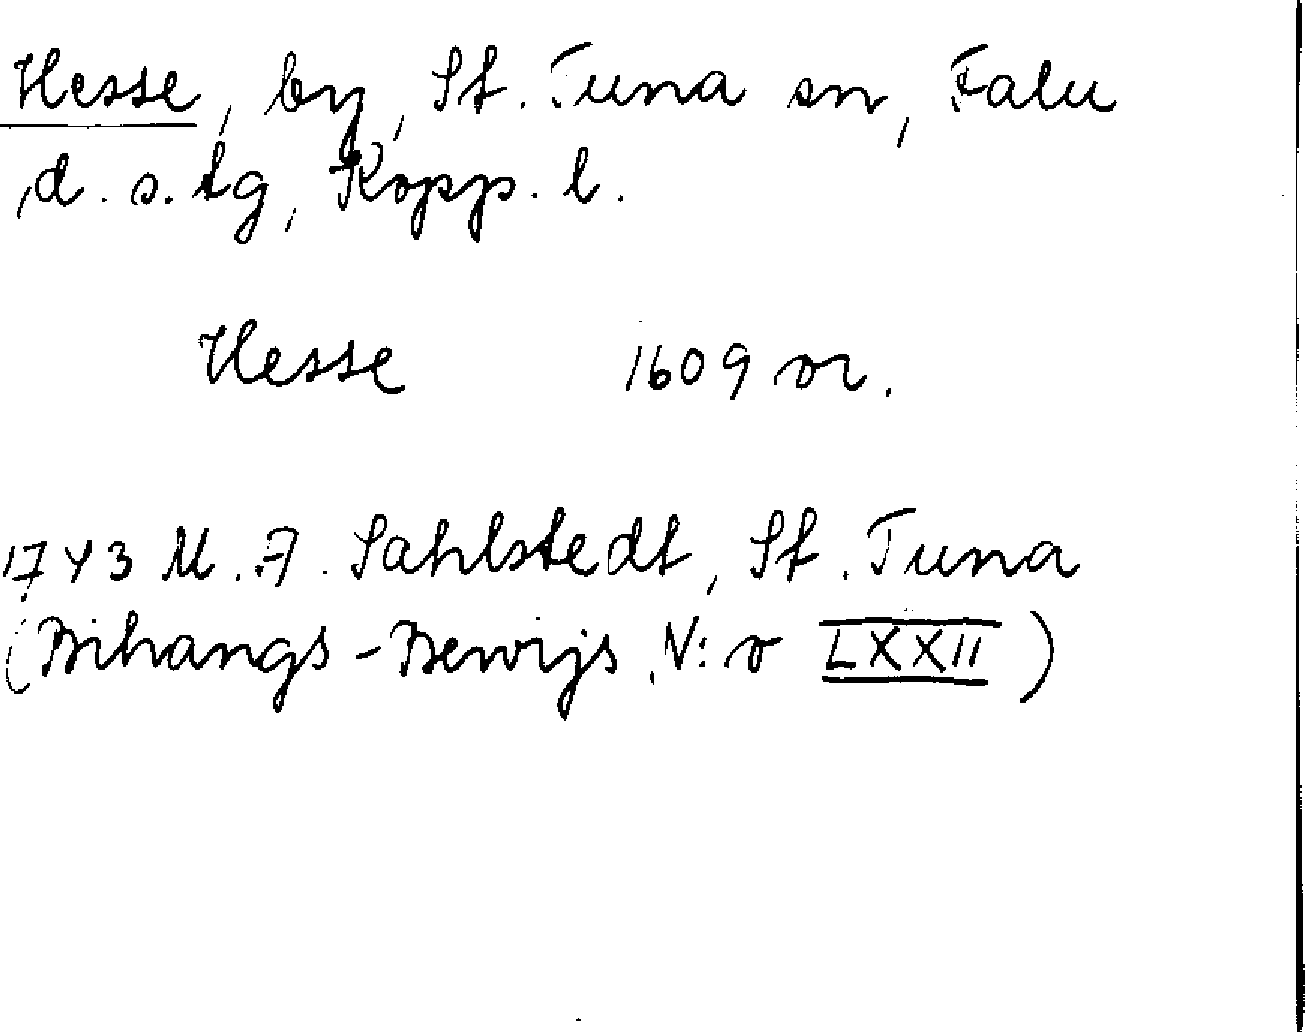 Hesse, by, St. Tuna sn, Falu
d. s. tg, Kopp. l.
Hesse 1609 or.
1743 M. A. Sahlstedt, St. Tuna
(Bihangs-Bewijs N:o LXXII)